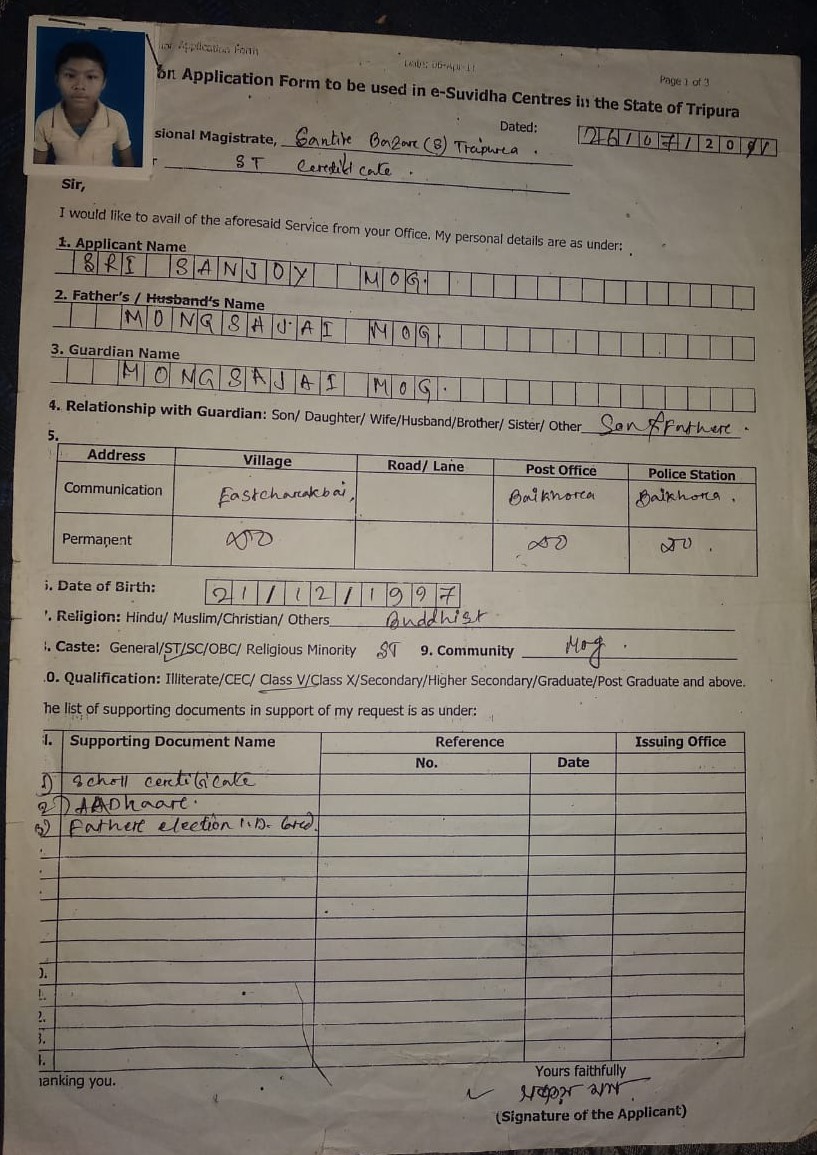 on Application Form
Date: 06-Apr-11
Page 1 of 3
on Application Form to be used in e-Suvidha Centres in the State of Tripura
Dated: 26/07/2011
sional Magistrate, Santire Bazare (S) Traipurea .
r ST Ceretificate .
Sir,
I would like to avail of the aforesaid Service from your Office. My personal details are as under:
1. Applicant Name
SRI SANJOY MOG.
2. Father's / Husband's Name
MONGSAJAI MOG.
3. Guardian Name
MONGSAJAI MOG.
4. Relationship with Guardian: Son/ Daughter/ Wife/Husband/Brother/ Sister/ Other Son & Fathere .
5.
Address Village Road/ Lane Post Office Police Station
Communication Eastcharakbai, Baikhorea Baikhora .
Permanent
. Date of Birth: 21/12/1997
. Religion: Hindu/ Muslim/Christian/ Others Buddhist
. Caste: General/ST/SC/OBC/ Religious Minority ST 9. Community Mog .
0. Qualification: Illiterate/CEC/ Class V/Class X/Secondary/Higher Secondary/Graduate/Post Graduate and above.
he list of supporting documents in support of my request is as under:
l. Supporting Document Name Reference Issuing Office
No. Date
1) Scholl ceretificate
2) AADhaare.
3) Fathere election I.D. Cred.
0.
1.
2.
3.
4.
anking you.
Yours faithfully
(Signature of the Applicant)